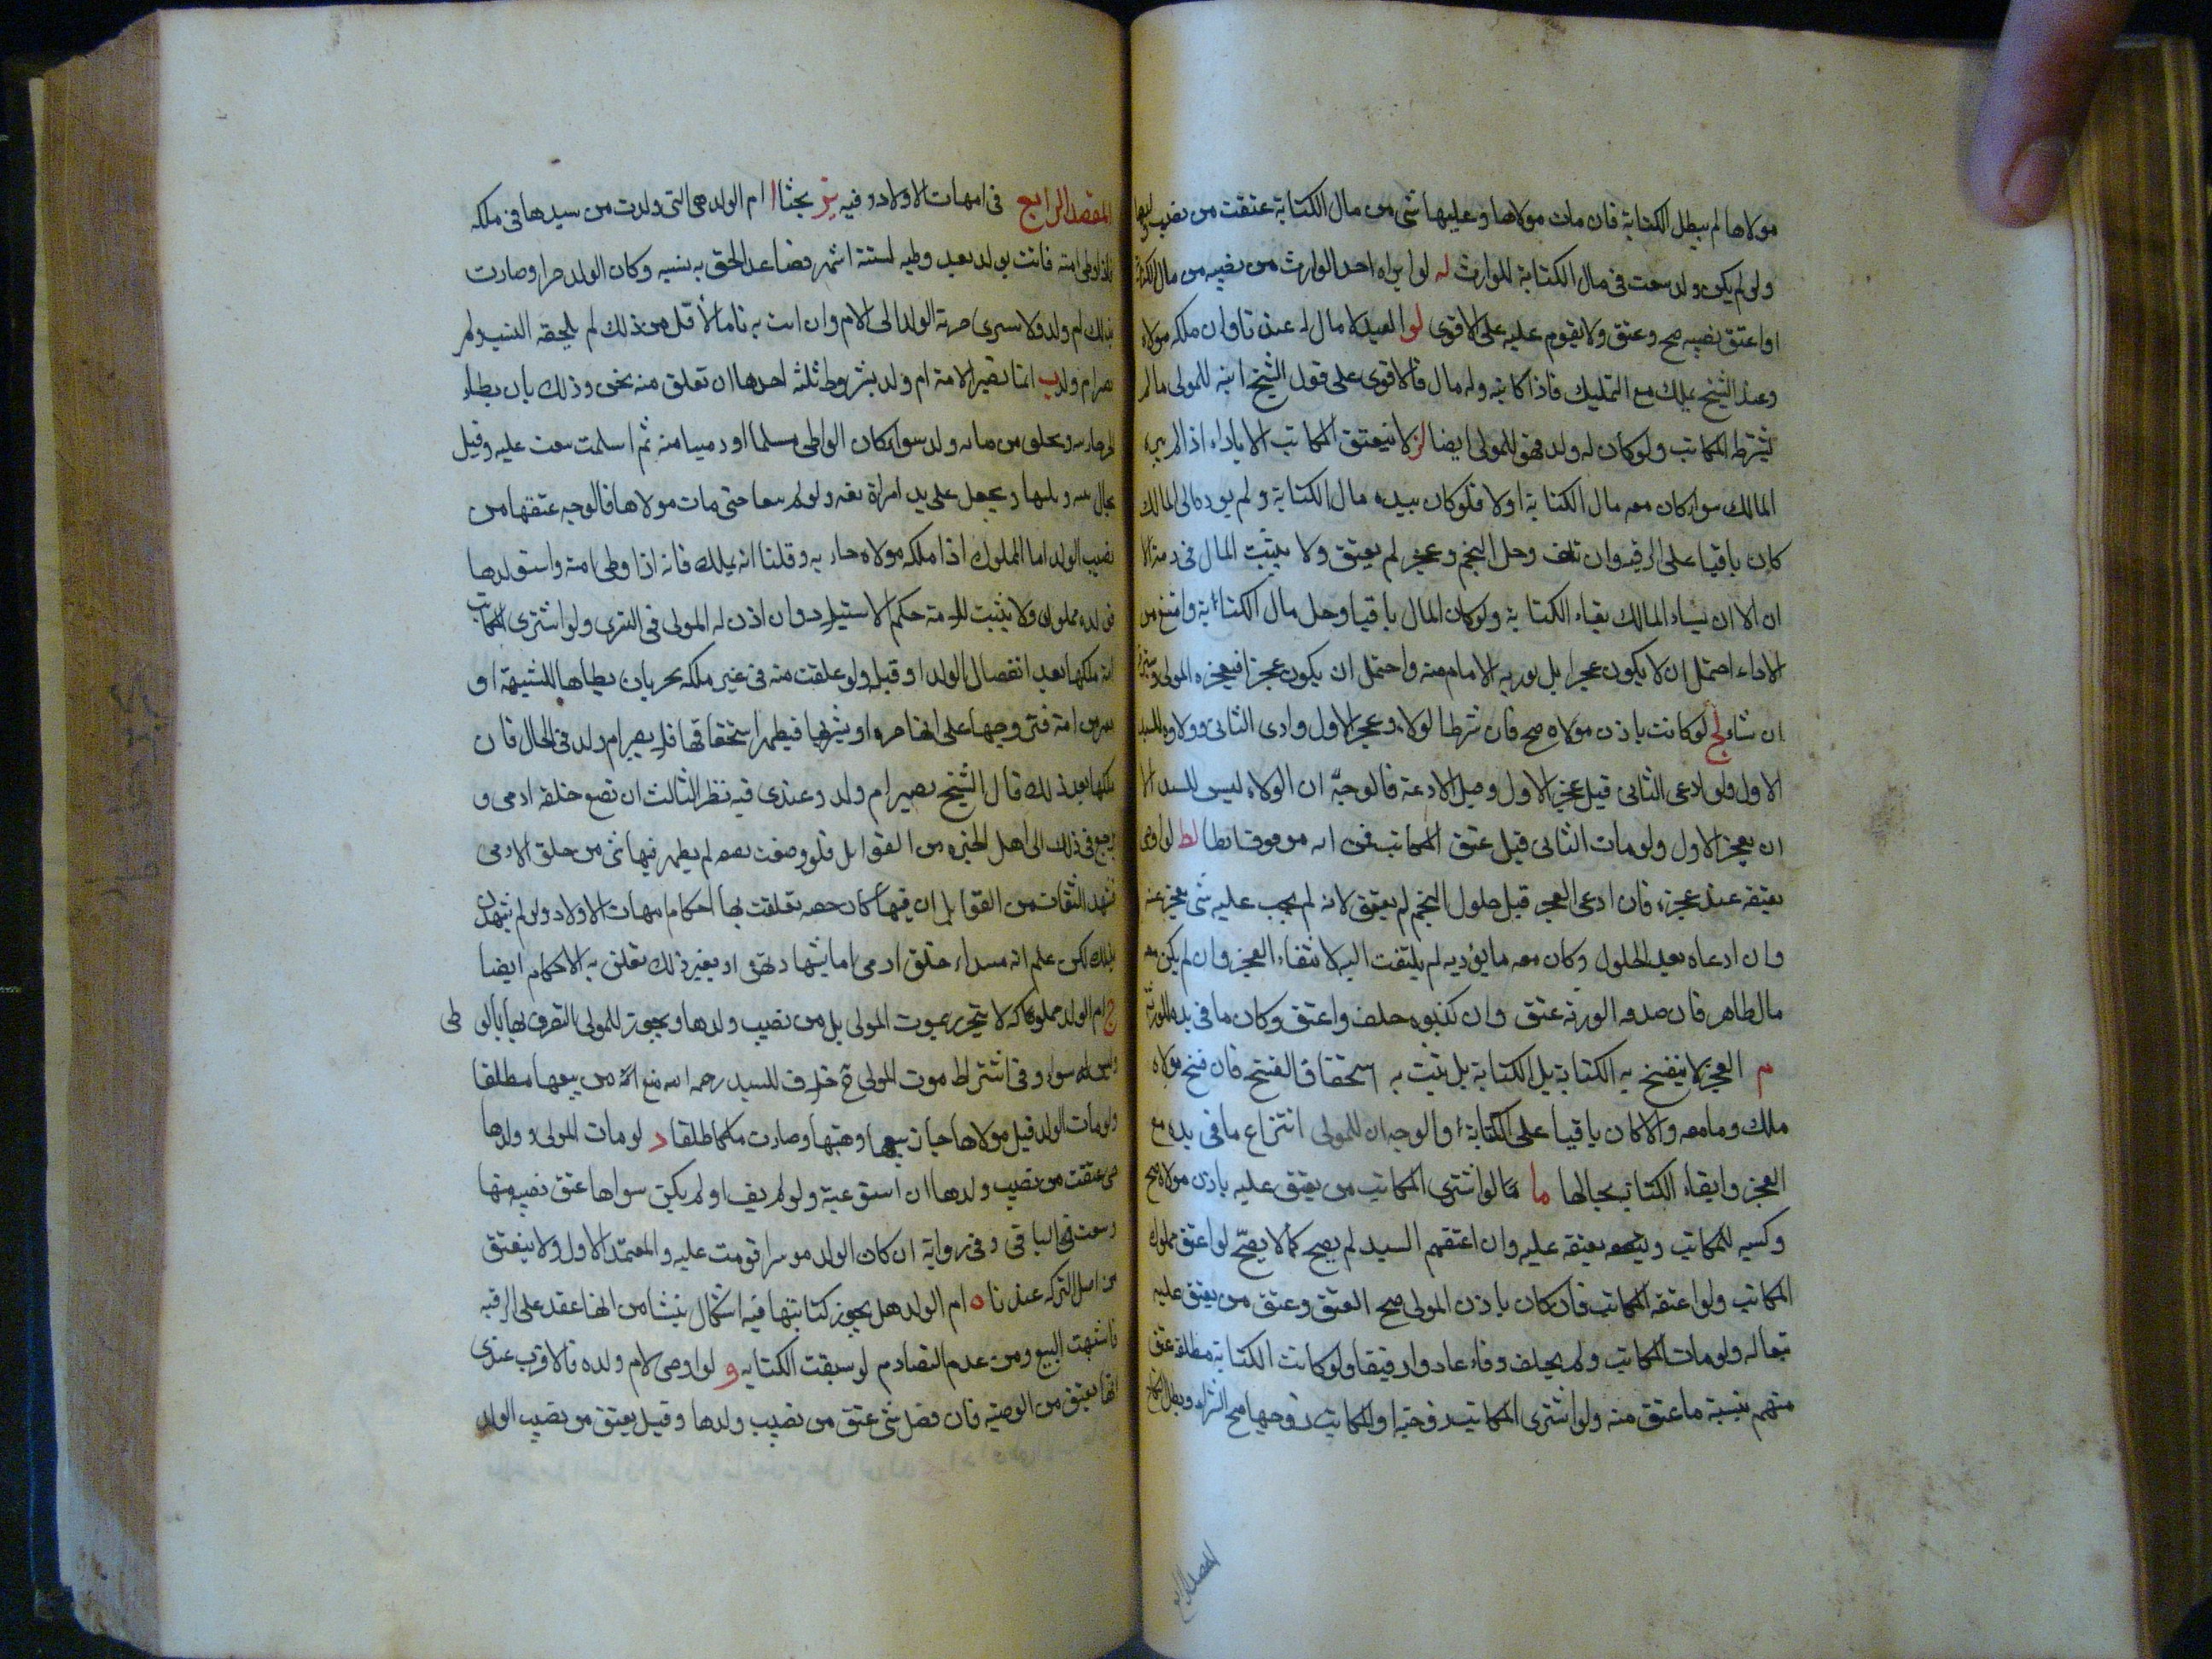 مولاها لم يبطل الكتابة فان مات مولاها وعليها شى من مال الكتابة عتقت من نصيب ولدها
ولو لم يكن ولد سعت فى مال الكتابة للوارث له لو ابراه احد الوارث من نصيبه من مال الكتابة
او اعتق نصيبه صح وعتق ولا يقوم عليه على الاقوى لو العبد لا مال له عندنا وان ملكه مولاه
وعند الشيخ يملك مع التمليك فاذا كاتبه وله مال فالاقوى على قول الشيخ انه للمولى ما لم
يشترطه المكاتب ولو كان له ولد فهو للمولى ايضا لز لا ينعتق المكاتب الا باداء
المالك سواء كان معه مال الكتابة اولا فلو كان بيده مال الكتابة ولم يوده الى المالك
كان باقيا على الرقية وان تلف وحل النجم وعجز لم يعتق ولا يثبت المال فى ذمته الا
ان الا ان يشاء المالك بقاء الكتابة ولو كان المال باقيا وحل مال الكتابة وامتنع من
الاداء احتمل ان لا يكون عجزا بل يوديه الامام عنه واحتمل ان يكون عجزا فيعجزه المولى
ان شاء لح لو كاتب باذن مولاه صح فان شرط الولاء وعجز الاول وادى الثانى وولاوه للسيد
الاول ولو ادى الثانى قبل عجز الاول وقبل الاداء فالوجه ان الولاء ليس للسيد الا
ان يعجز الاول ولو مات الثانى قبل عتق المكاتب موقوفا لط لو اوصى
بعتقه عند عجزه فان ادعى العجز قبل حلول النجم لم يعتق لانه لم يجب عليه شى يعجز عنه
وان ادعاه بعد الحلول وكان معه ما يؤديه لم يلتفت اليه لانتفاء العجز وان لم يكن معه
مال ظاهر فان صدقه الورثة عتق وان كذبوه حلف واعتق وكان ما فى يده للورثة
م العجز لا ينفسخ به الكتابة بل الكتابة بل يثبت به استحقاق الفسخ فان فسخ مولاه
ملك وما معه والا كان باقيا على الكتابة والوجه ان للمولى انتزاع ما فى يده مع
العجز وابقاء الكتابة بحالها ما لو اشترى المكاتب من يعتق عليه باذن مولاه صح
وكسبه للمكاتب ونفقته عليه وان اعتقهم السيد لم يصح كما لا يصح لو اعتق مملوك
المكاتب ولو اعتقه المكاتب فان كان باذن المولى صح العتق وعتق من يعتق عليه
تبعا له ولو مات المكاتب ولم يخلف وفاء عادوا رقيقا ولو كانت الكتابة مطلقة عتق
منهم بنسبة ما عتق منه ولو اشترى المكاتب زوجته او المكاتبة زوجها صح الشراء وبطل النكاح
المقصد الرابع
المقصد الرابع فى امهات الاولاد وفيه يز بحثا ا ام الولد هى التى ولدت من سيدها فى ملكه
فاذا وطى امته فاتت بولد بعد وطيه لستة اشهر فصاعدا لحق به نسبه وكان الولد حرا وصارت
بذلك ام ولد ولا تسرى حرية الولد الى الام وان اتت به تاما لاقل من ذلك لم يلحقه النسب ولم
تصر ام ولد ب انما تصير الامة ام ولد بشروط ثلثة احدها ان تعلق منه بحر وذلك بان يطأ
جاريته وتعلق من مائه ولد سواء كان الواطى مسلما او ذميا ثم اسلمت بيعت عليه وقيل
يحال بينه وبينها ويجعل على يد امراة ثقة ولو لم حتى مات مولاها فالوجه عتقها من
نصيب الولد اما المملوك اذا ملكه مولاه جارية وقلنا انه يملك فانه اذا وطى امته واستولدها
فولده مملوك ولا يثبت للامة حكم الاستيلاد وان اذن له المولى فى التسرى ولو اشترى المكاتب
امة ملكها بعد انفصال الولد او قبله ولو علقت منه فى غير ملكه بحر بان يطاها للشبهة او
يغر من امة فتزوجها على انها حرة او يشتريها فيظهر استحقاقها فلا يصير ام ولد فى الحال فان
ملكها بعد ذلك قال الشيخ تصير ام ولد وعندى فيه نظر الثالث ان تضع خلقة ادمى و
يرجع فى ذلك الى اهل الخبرة من القوابل فلو وضعت بضعة لم يظهر فيها شى من خلق الادمى
فشهد الثقات من القوابل ان فيها كان تعلقت بها احكام امهات الاولاد ولو لم يشهدن
بذلك لكن علم انه مبداء خلق ادمى اما بشهادتهن او بغير ذلك تعلق به الاحكام ايضا
ج ام الولد مملوكة لا تتحرر بموت المولى بل من نصيب ولدها ويجوز للمولى التصرف بها بالوطى
سواء وفى اشتراط موت المولى ح خلاف للسيد رحمه الله منع الامة من بيعها مطلقا
ولو مات الولد قبل مولاها جاز بيعها وهبتها وصارت ملكا طلقا د لو مات المولى وولدها
حى عتقت من نصيب ولدها ان استوعبه ولو لم يف او لم يكن سواها عتق نصيبه منها
وسعت فى الباقى وفى رواية ان كان الولد موسرا قومت عليه والمعتمد الاول ولا ينعتق
من اصل التركة عندنا ه ام الولد هل يجوز كتابتها فيه اشكال ينشا من انها عقد على الرقبة
فاشبهت البيع ومن عدم التصادم لو سبقت الكتابة و لو اوصى لام ولده فالاقرب عندى
انها يعتق من الوصية فان فضل شى عتق من نصيب ولدها وقيل يعتق من نصيب الولد